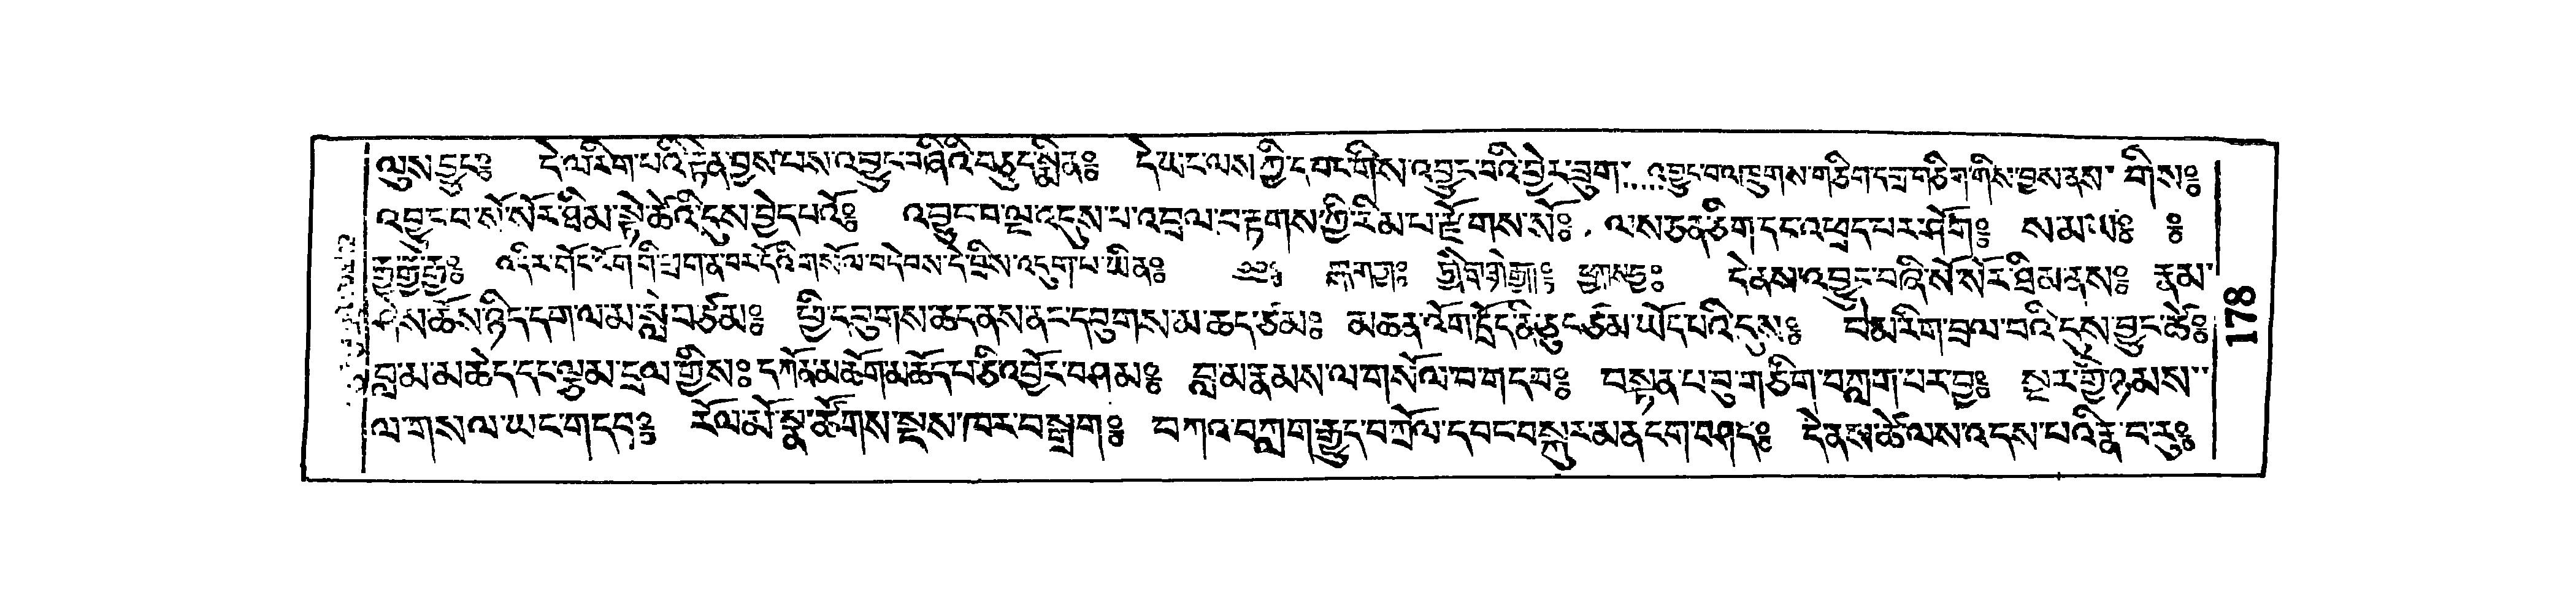 ལུས་བྱུང༔ དེ་ལ་རིག་པའི་རྟེན་བྱས་པས་འབྱུང་བཞིའི་བཅུད་སྨིན༔ དེ་ཡང་ལས་ཀྱི་དབང་གིས་འབྱུང་བའི་བྱེར་བྲུག་....འབྱུང་བ་འཁྲུགས་གཅིག་དགྲ་གཅིག་གིས་བྱས་ནས་ གིས༔
འབྱུང་བ་སོ་སོར་ཐིམ་སྟེ་ཚེའི་དུས་བྱེད་པའོ༔ འབྱུང་བ་ལྔ་འདུས་པ་འབྲལ་ང་རྟགས་ཀྱི་རིམ་པ་རྫོགས་སོ༔ ལས་ཅན་ཅིག་དང་འཕྲད་པར་ཤོག༔ ས་མ་ཡ༔ ༔
རྒྱ་རྒྱ་རྒྱ༔ འདིར་གོང་འོག་གི་ཤྲཀན་བར་དོའི་གསོལ་བདེབས་དེ་བྲིས་འདུག་པ་ཡིན༔ དེ་ནས་འབྱུང་བཞི་སོ་སོར་ཐིམ་ནས༔ རྣམ་
ཤེས་ཆོས་ཉིད་དག་ལམ་སླེབ་ཙམ༔ ཕྱི་དབུགས་ཆད་ནས་ནང་དབུགས་མ་ཆད་ཙམ༔ མཆན་འོག་དྲོད་ནི་ཅུང་ཙམ་ཡོད་པའི་དུས༔ བེམ་རིག་བྲལ་བའི་དུས་བྱུང་ཚེ༔
བླ་མ་མཆེད་དང་ལྕམ་དྲལ་གྱིས༔ དཀོན་མཆོག་མཆོད་པ་ཅི་འབྱོར་བཤམ༔ བླ་མ་རྣམས་ལ་གསོལ་བ་གདབ༔ བསྟན་པ་བུ་གཅིག་བཀླག་པར་བྱ༔ སྔར་གྱི་ཉམས་
ལ་གསལ་ཡང་གདབ༔ རོལ་མོ་སྣ་ཚོགས་སྤོས་ཁར་བསྒྲག༔ བཀའ་བཀླག་རྒྱུད་བཀྲོལ་དབང་བསྐུར་མན་ངག་བཤད༔ དེ་ནས་ཚེ་ལས་འདས་པའི་རྣ་བ་རུ༔
178